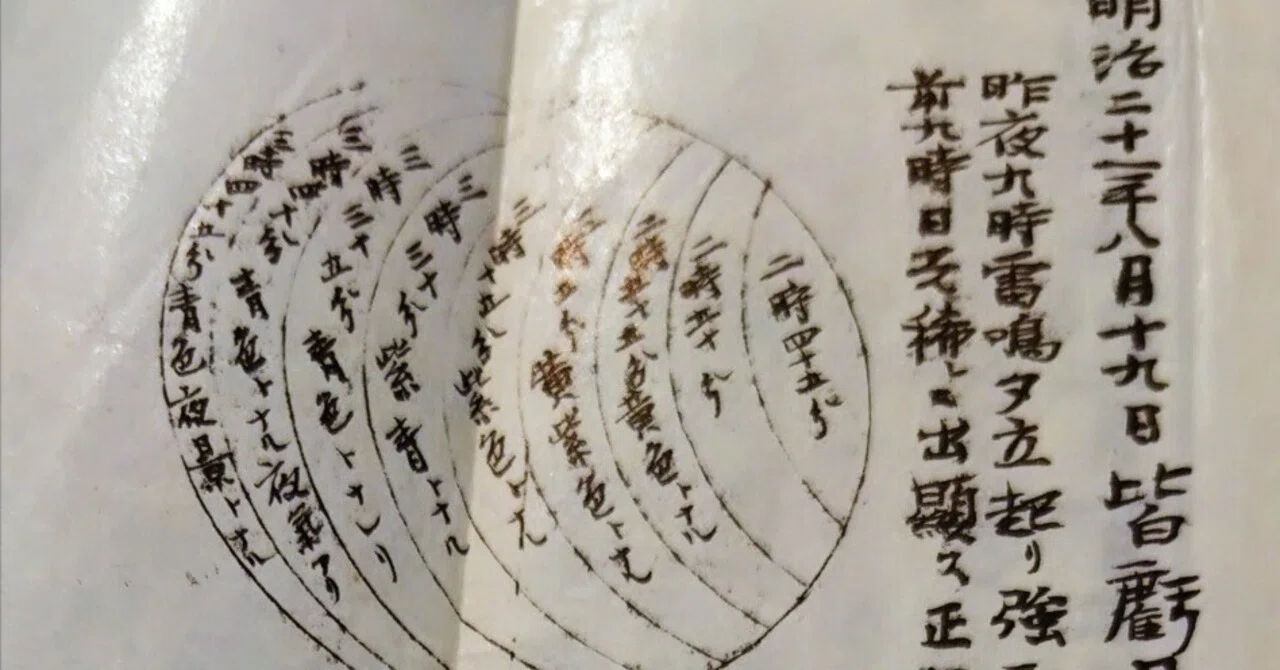 明治二十年八月十九日皆虧
昨夜九時雷鳴夕立起リ強
前九時日光稀ニ出顕ス正
二時四十五分
二時五十分
二時五十五分黄色トナル
三時五分黄紫色トナル
三時十五分紫色トナル
三時三十分紫青トナル
三時三十五分青色トナレリ
三時四十分青色トナル夜氣アリ
三時四十五分青色夜景トナル